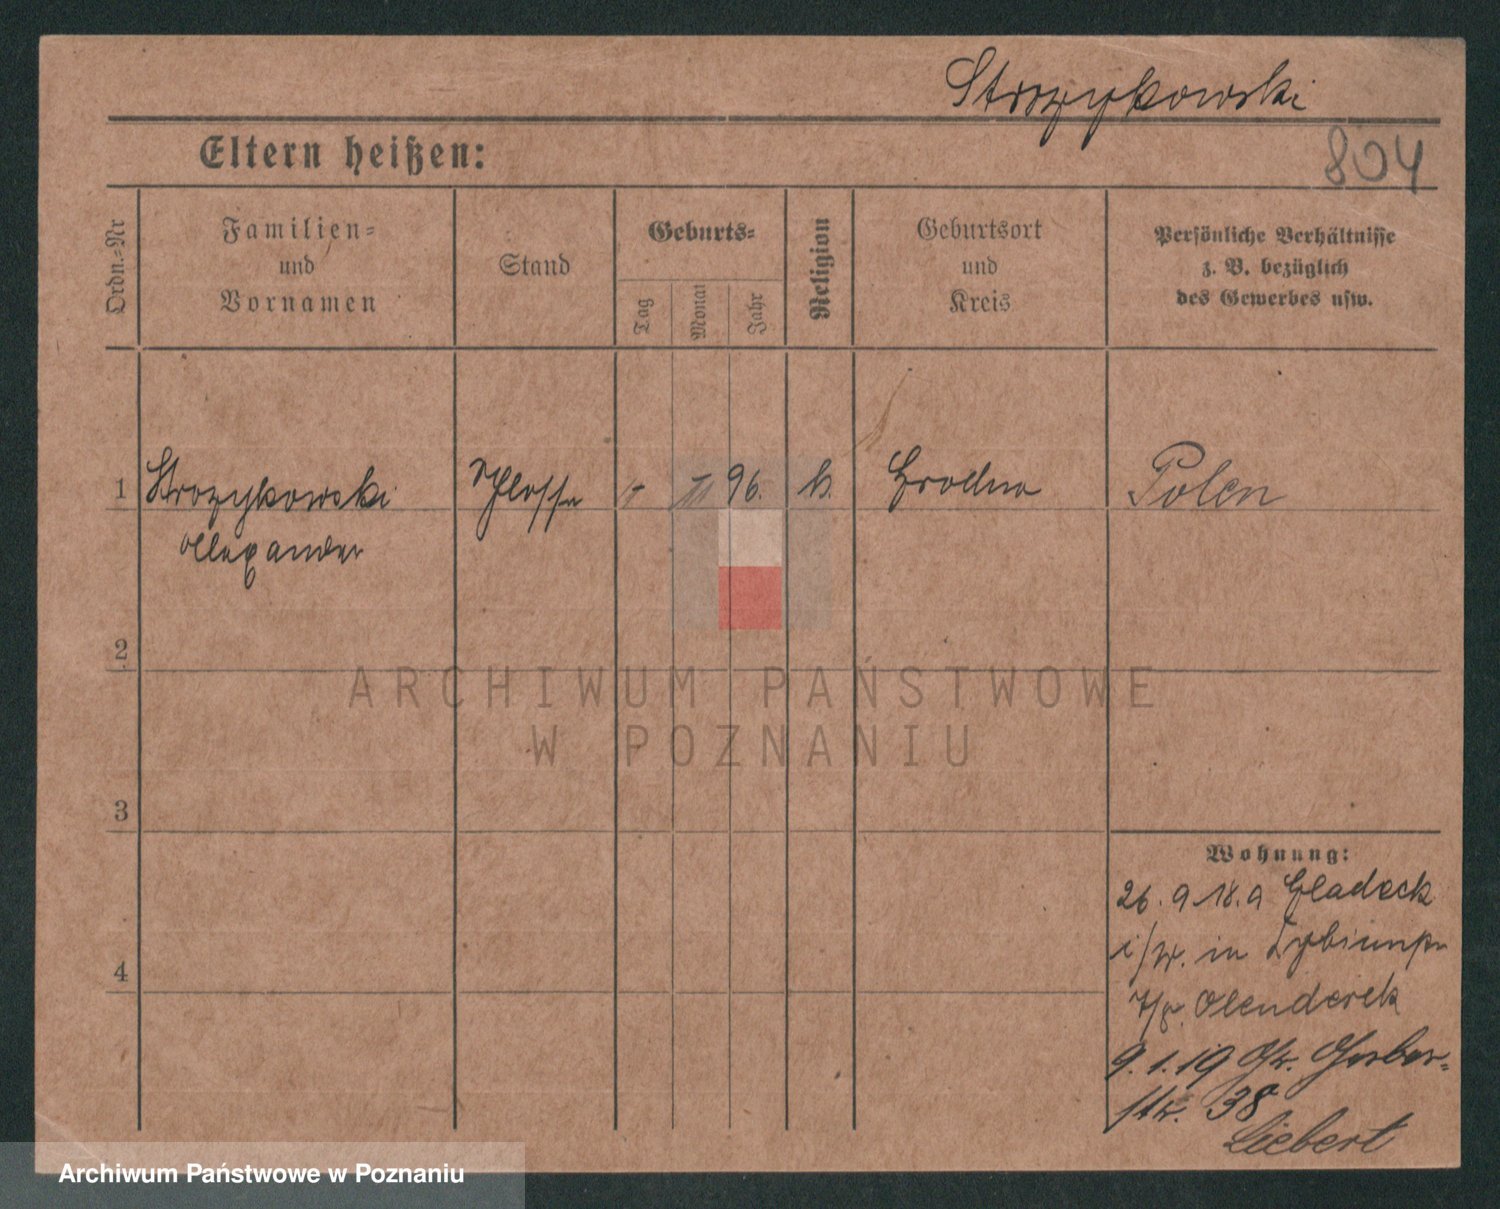 Strozykowski
804
Eltern heißen:
Ordn.-Nr
Familien-
und
Vornamen
Stand
Geburts-
Tag
Monat
Jahr
Religion
Geburtsort
und
Kreis
Persönliche Verhältnisse
z. B. bezüglich
des Gewerbes usw.
1 Strozykowski 96. Grodno Polen
Alexander
2
ARCHIWUM PAŃSTWOWE
W POZNANIU
3
Wohnung:
26. 9. 18. a Gladeck
in
4
Olenderek
9. 1. 19 Gr. Gerber-
str. 38
Liebert
Archiwum Państwowe w Poznaniu